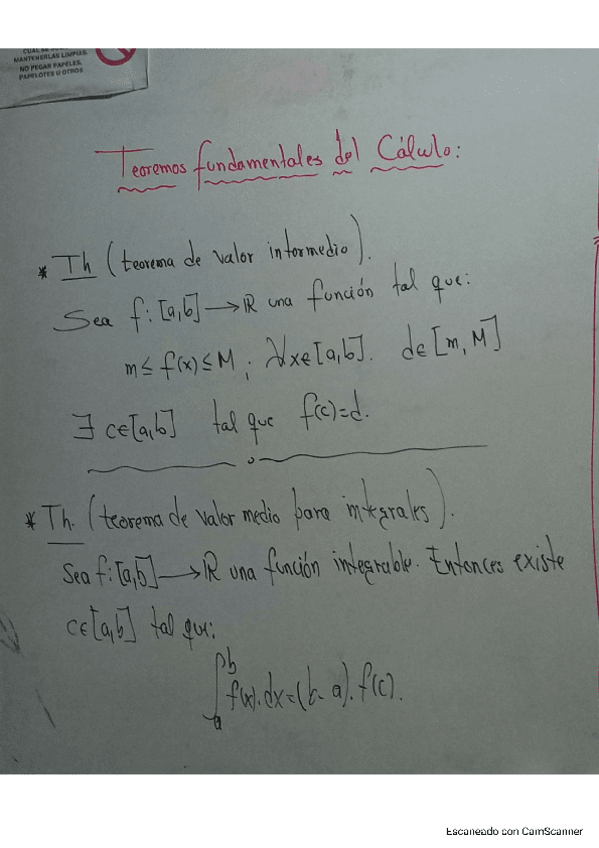 MANTENERLAS LIMPIAS.
NO PEGAR PAPELES,
PAPELOTES U OTROS
Teoremos fundamentales del Cálculo:
* Th (teorema de valor intermedio).
Sea f: [a,b] → ℝ una función tal que:
m ≤ f(x) ≤ M ; ∀x∈[a,b]. d∈[m, M]
∃ c∈[a,b] tal que f(c)=d.
* Th. (teorema de valor medio para integrales).
Sea f: [a,b] → ℝ una función integrable. Entonces existe
c∈[a,b] tal que:
∫_a^b f(x).dx=(b-a).f(c).
Escaneado con CamScanner